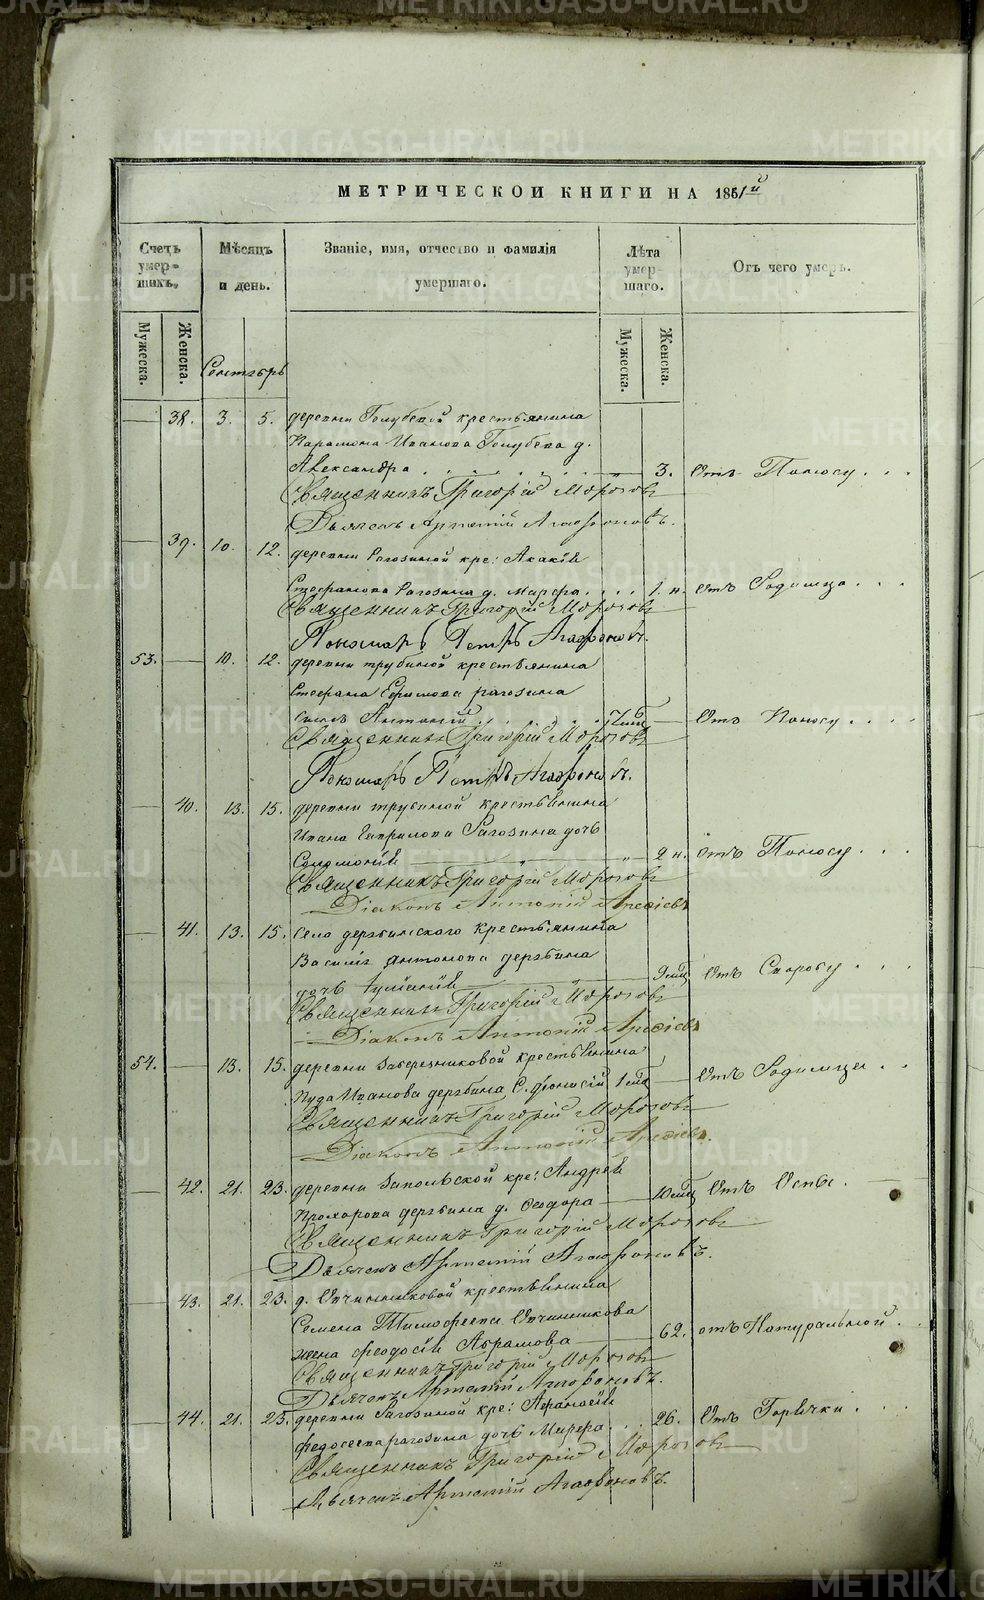 МЕТРИЧЕСКОЙ КНИГИ НА 1861й
Счетъ умершихъ.
Мѣсяцъ и день.
Званіе, имя, отчество и фамилія умершаго.
Лѣта умершаго.
Отъ чего умеръ.
Мужеска.
Женска.
Мужеска.
Женска.
Сентябрь
— 38. 3. 5. деревни Голубевой крестьянина
Парамона Иванова Голубева д.
Александра 3. Отъ Поносу
Священникъ Григорій Морозовъ
Дьячекъ Артемій Агафоновъ.
— 39. 10. 12. деревни Рагозиной кре: Акакія
Стефанова Рагозина д. Марфа 1. н. Отъ Родимца
Священникъ Григорій Морозовъ
Пономарь Петръ Агафоновъ.
53. — 10. 12. деревни трубиной крестьянина
Стефана Ефимова рагозина
сынъ Антоній — Отъ Поносу
Священникъ Григорій Морозовъ
Пономарь Петръ Агафоновъ.
— 40. 13. 15. деревни трубиной крестьянина
Ивана Гаврилова Рагозина дочь
Соломонія 2 н. Отъ Поносу
Священникъ Григорій Морозовъ
Діаконъ Антоній
— 41. 13. 15. села дерябинского крестьянина
Василія Антонова дерябина
дочь Іулианія 9 мцъ Отъ Скорбу
Священникъ Григорій Морозовъ
Діаконъ Антоній
54. — 13. 15. деревни Заберезниковой крестьянина
Іуда Иванова дерябина С. 1 мцъ — Отъ Родимца
Священникъ Григорій Морозовъ
Діаконъ Антоній
— 42. 21. 23. деревни Запольской кре: Андрея
Прохорова дерябина д. Феодора 10 мцъ Отъ Оспы.
Священникъ Григорій Морозовъ
Дьячекъ Артемій Агафоновъ.
— 43. 21. 23. д. Овчинниковой крестьянина
Семена Тимофеева Овчинникова
жена Феодосія Абрамова 62. отъ Натуральной
Священникъ Григорій Морозовъ
Дьячекъ Артемій Агафоновъ.
— 44. 21. 23. деревни Рагозиной кре: Афанасія
Федосеева рагозина дочь Марфа 26. Отъ Горячки
Священникъ Григорій Морозовъ
Дьячекъ Артемій Агафоновъ.
METRIKI.GASO-URAL.RU